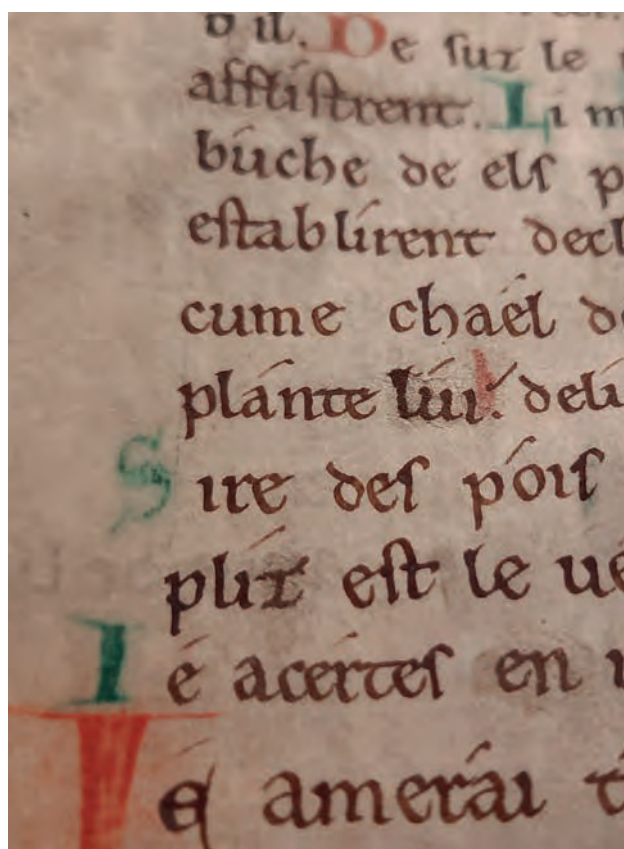 d il. De sur le
afflistrent. Li m
búche de els p
establírent decl
cume chaél de
plánte lúi. deli
Sire des póis
plír est le ué
Ié acértes en
Ié amerái t